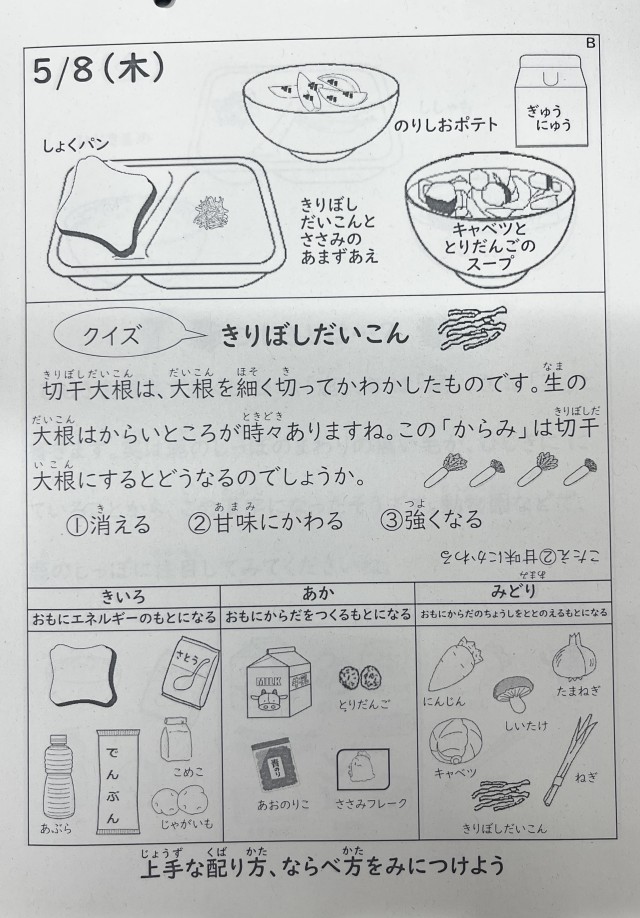 B
5/8(木)
のりしおポテト
ぎゅう
にゅう
しょくパン
きりぼし
だいこんと
ささみの
あまずあえ
キャベツと
とりだんごの
スープ
クイズ
きりぼしだいこん
きりぼしだいこん だいこん ほそ き なま
切干大根は、大根を細く切ってかわかしたものです。生の
だいこん ときどき きりぼしだ
大根はからいところが時々ありますね。この「からみ」は切干
いこん
大根にするとどうなるのでしょうか。
き あまみ つよ
①消える ②甘味にかわる ③強くなる
こたえ②甘味にかわる
あまみ
きいろ
おもにエネルギーのもとになる
あか
おもにからだをつくるもとになる
みどり
おもにからだのちょうしをととのえるもとになる
さとう
でんぷん
こめこ
あぶら
じゃがいも
MILK
牛乳
とりだんご
青のり
あおのりこ
ささみフレーク
にんじん
たまねぎ
しいたけ
キャベツ
ねぎ
きりぼしだいこん
じょうず くば かた かた
上手な配り方、ならべ方をみにつけよう